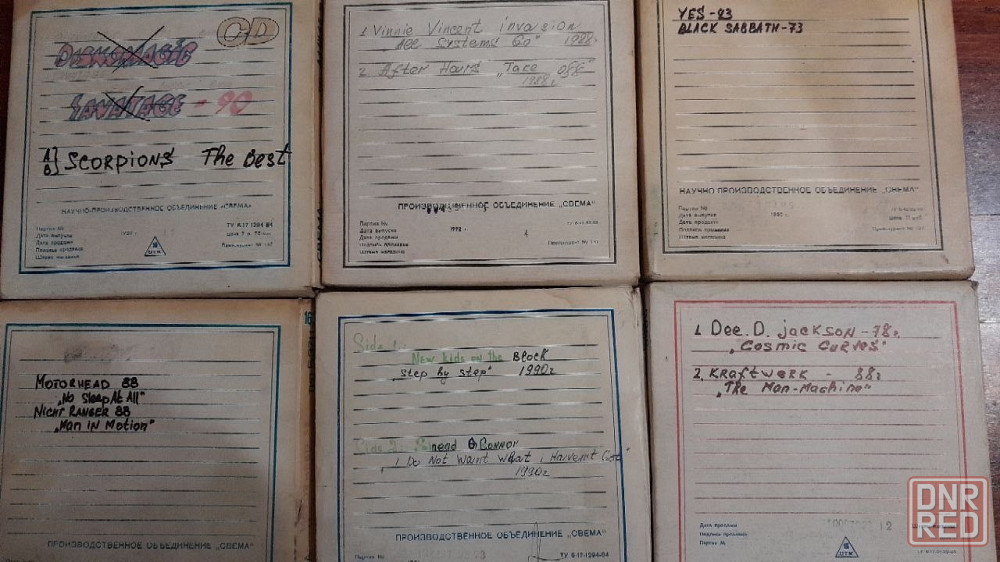 CD
DISKOMAGIC
SANATAGE - 90
A} SCORPIONS The Best
B}
НАУЧНО-ПРОИЗВОДСТВЕННОЕ ОБЪЕДИНЕНИЕ „СВЕМА"
Партия №
Дата выпуска
Дата продажи
ТУ 6-17-1284-84
1. Vinnie Vincent invasion
„ALL Systems Go" 1988г.
2. After Hours „Take off"
1988г
ПРОИЗВОДСТВЕННОЕ ОБЪЕДИНЕНИЕ „СВЕМА"
Партия №
Дата выпуска
Дата продажи
YES - 83
BLACK SABBATH - 73
НАУЧНО ПРОИЗВОДСТВЕННОЕ ОБЪЕДИНЕНИЕ „СВЕМА"
Партия №
Дата выпуска
Дата продажи
MOTORHEAD 88
„No Sleep At All"
NIGHT RANGER 88
„Man In Motion"
ПРОИЗВОДСТВЕННОЕ ОБЪЕДИНЕНИЕ „СВЕМА"
16
Side 1:
New kids on the Block
„Step by step" 1990г.
Side 2: Sinead O'Connor
„I Do Not Want What I Haven't Got"
1990г
ПРОИЗВОДСТВЕННОЕ ОБЪЕДИНЕНИЕ „СВЕМА"
ТУ 6-17-1284-84
1. Dee. D. jackson - 78г.
„Cosmic Curves"
2. Kraftwerk - 88г
„The Man-Machine"
Дата продажи
Подпись продавца
Партия №
DNR
RED